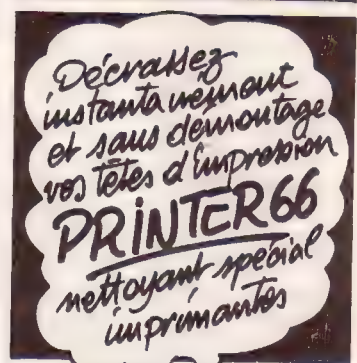 Décrassez
instantanément
et sans démontage
vos têtes d'impression
PRINTER 66
nettoyant spécial
imprimantes